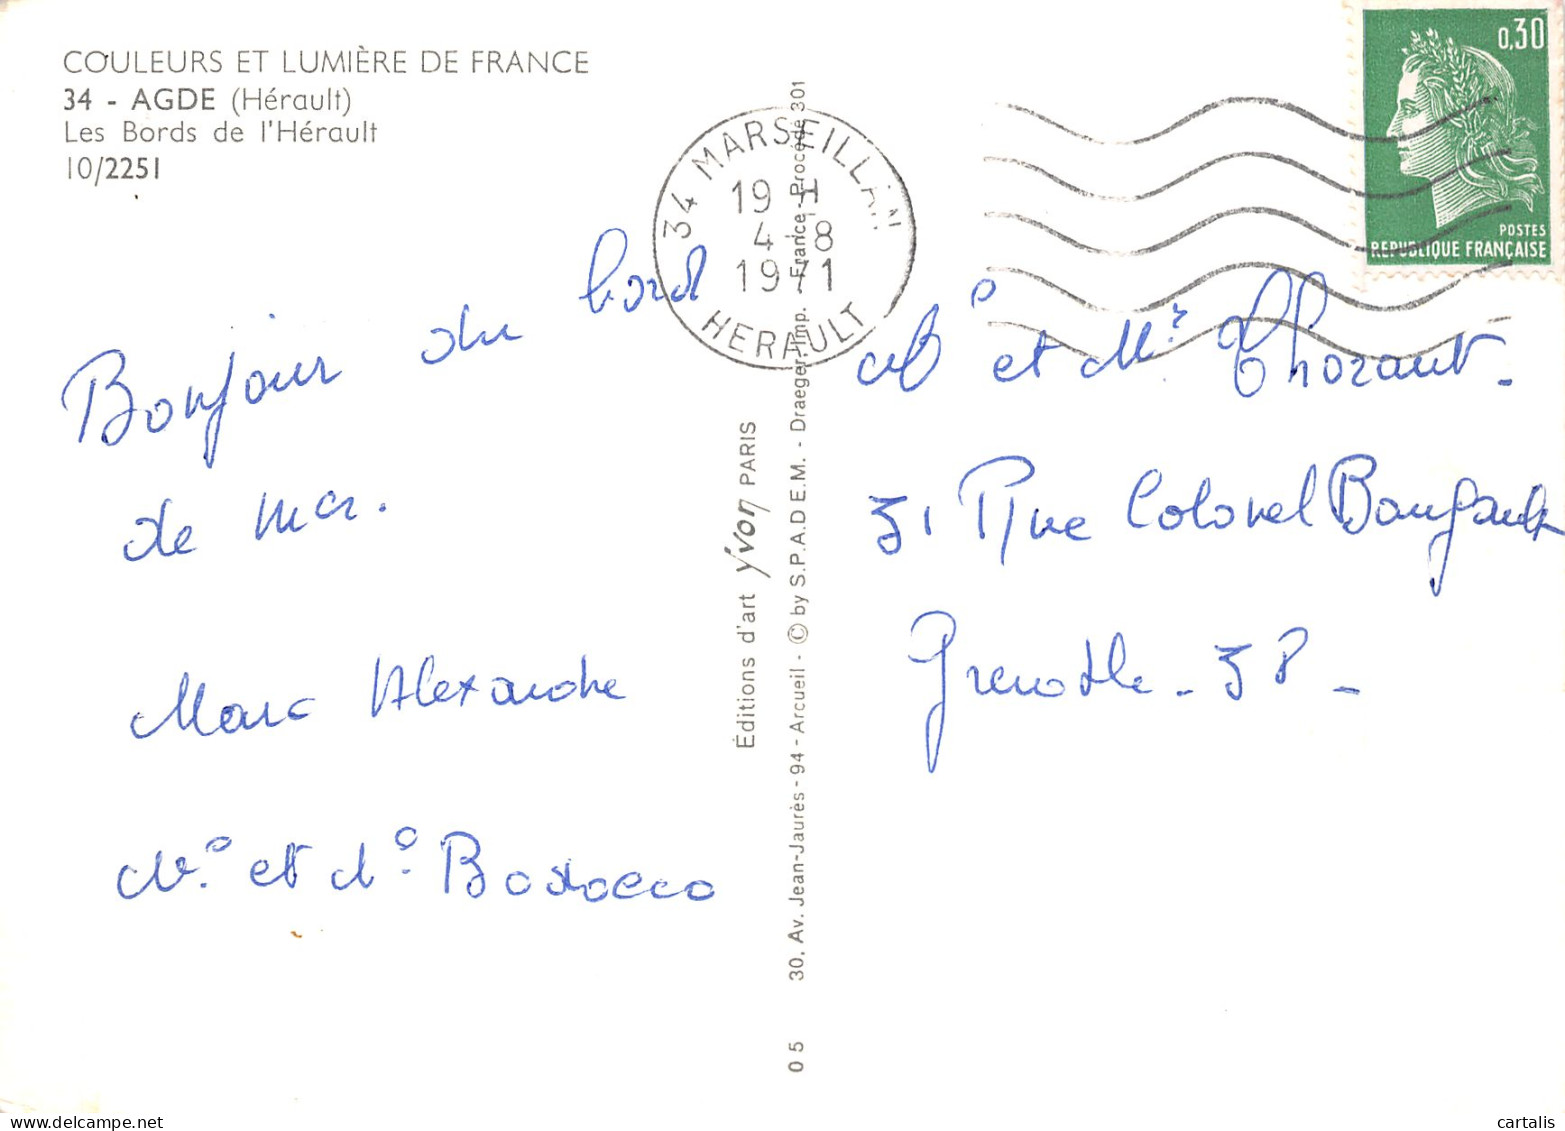 COULEURS ET LUMIÈRE DE FRANCE
34 - AGDE (Hérault)
Les Bords de l'Hérault
10/2251
Bonjour du bord
de mer.
Marc Alexandre
et
34 MARSEILLAN
19 H
4-8
1971
HERAULT
Éditions d'art yvon PARIS
30, Av. Jean-Jaurès - 94 - Arcueil - © by S.P.A.D.E.M. - Draeger, Imp. - France - Procédé 301
05
0,30
POSTES
REPUBLIQUE FRANÇAISE
et Mr Thorant.
31 Rue Colonel
Grenoble - 38 -
cartalis delcampe.net